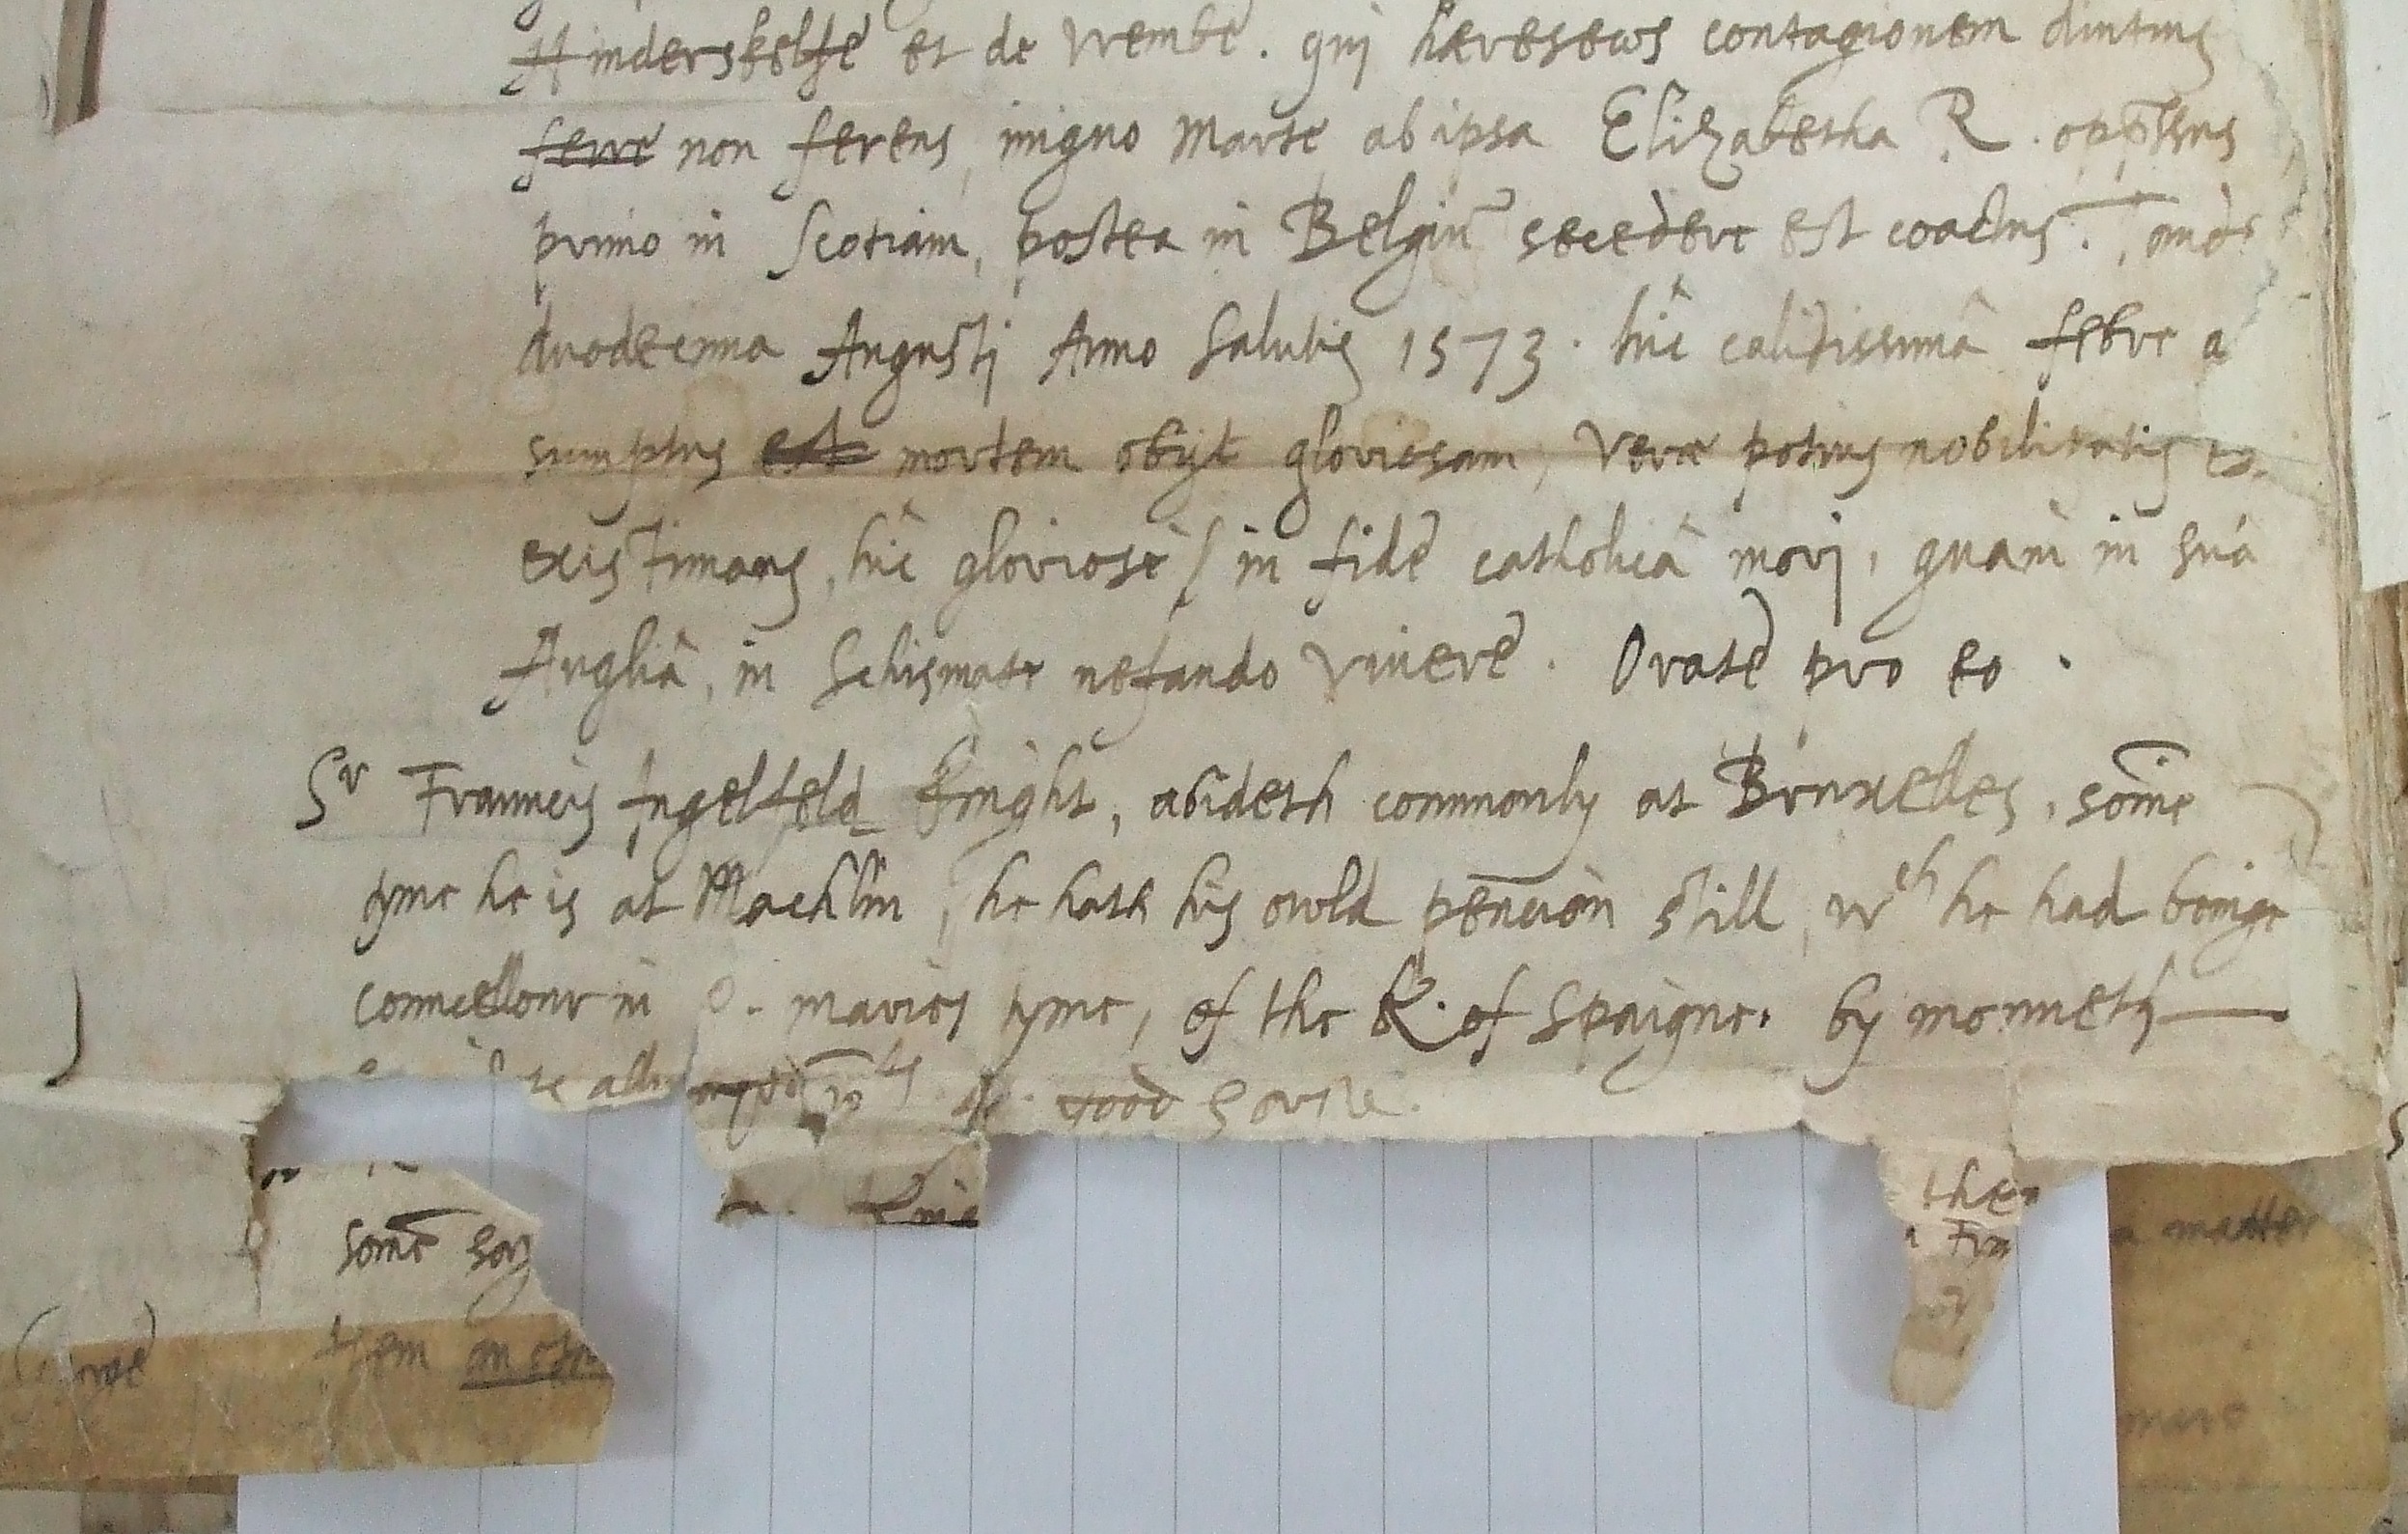 Hinderskelfe et de Wembe. qui hæreseωs contagionem diutius
ferre non ferens, iniquo Marte ab ipsa Elizabetha R. opp̄ssus
primo in Scotiam, postea in Belgiū secedere est coactus.
duodecima Augusti Anno Salutis 1573. hîc calidissimâ febre a
sumptus est mortem obijt gloriosam, veræ potius nobilitatis ex-
existimans, hîc gloriosè / in fide catholicâ morj, quam in suâ
Angliâ, in Schismate nefando vivere. Orate pro eo.
Sr Frauncis Ingelfeld knight, abideth commonly at Bruxelles, some
tyme he is at Machlin, he hath his owld pencion still, wch he had beinge
councellour in Q. maries tyme, of the K. of Spaigne. by monneth
te all
the
some say
Fra
a matter